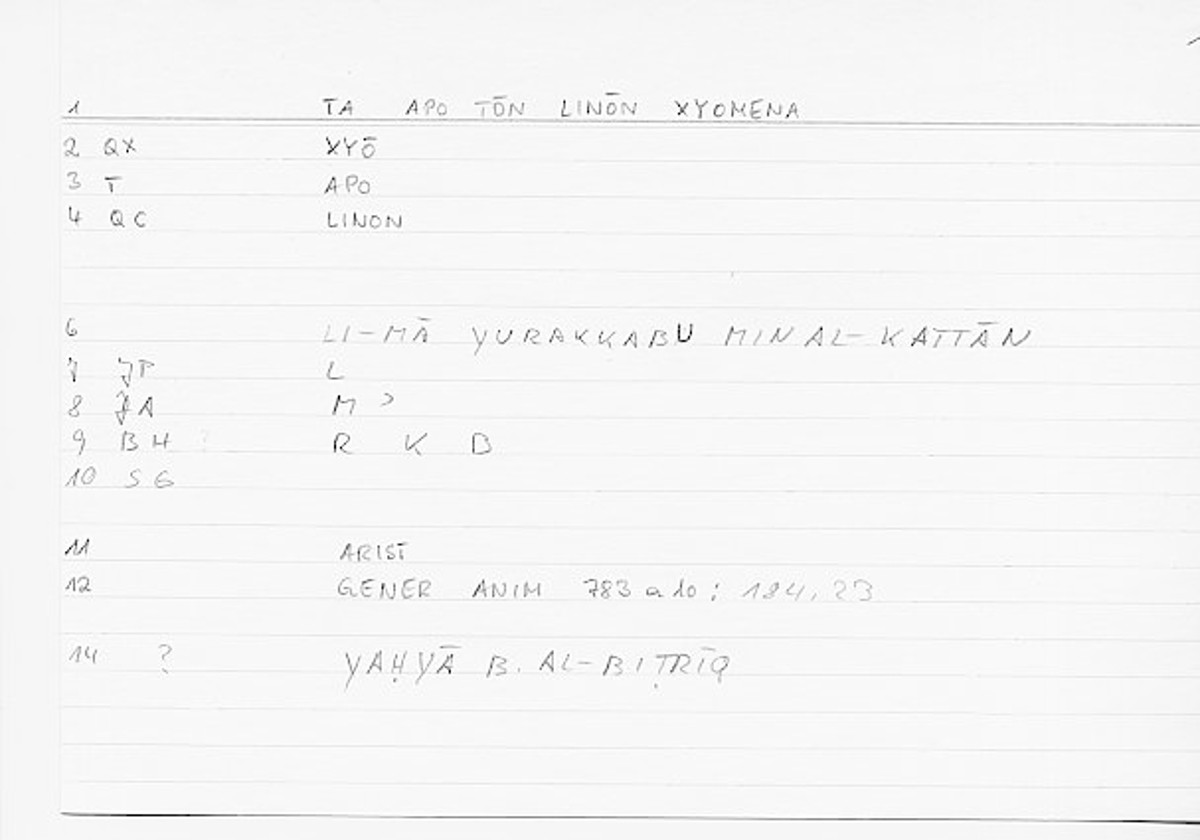 1 TA APO TŌN LINŌN XYOMENA
2 QX XYŌ
3 T APO
4 QC LINON
6 LI-MĀ YURAKKABU MIN AL-KATTĀN
7 JP L
8 JA M ʾ
9 BH ? R K B
10 SG
11 ARIST
12 GENER ANIM 783 a 10 ; 184, 23
14 ? YAḤYĀ B. AL-BIṬRĪQ